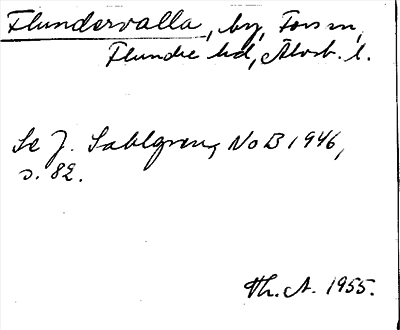 Flundervalla, by, Fors sn,
Flundre hd, Älvsb. l.
Se J. Sahlgren, NoB 1946,
s. 82.
Th. A. 1955.